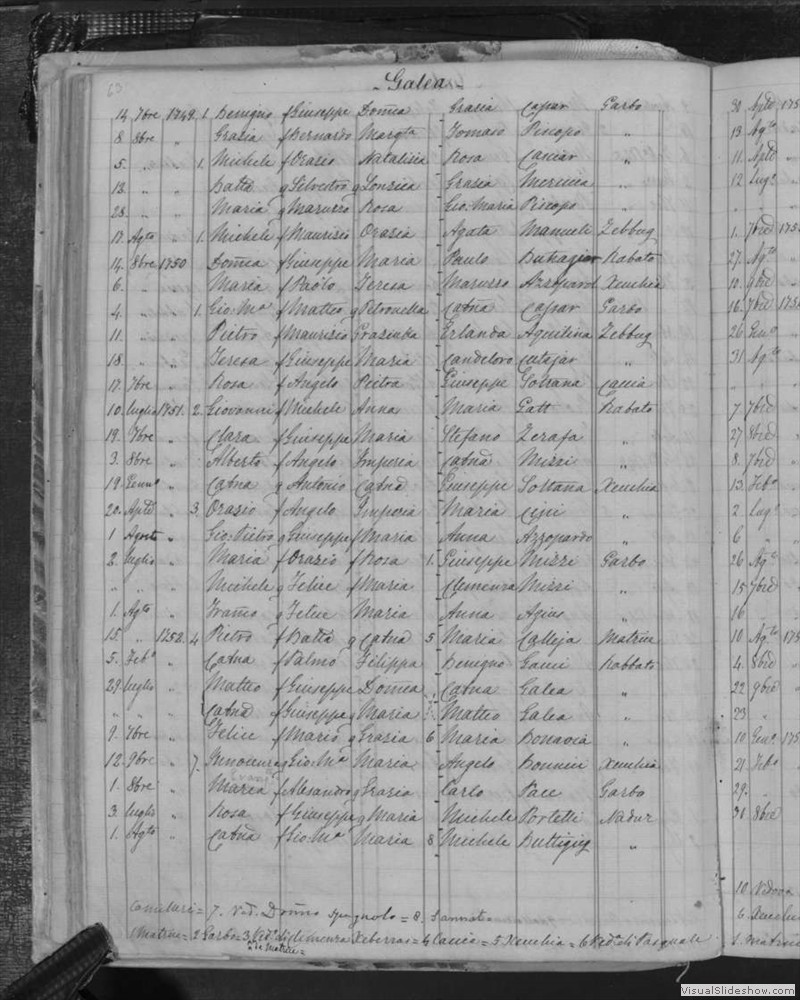 63.
Galea
14 7bre 1749. 1. Benigno f Giuseppe Domca Grazia Capar Garbo
8 8bre " Grazia f Bernardo Margta Tomaso Piscopo "
5. " " 1. Michele f Orazio Natalizia Rosa Cauciar "
13. " " Batta g Silvestro g Grazia "
28. " " Maria g Maruzzo Rosa Gio: Maria Piscopo "
17. Agto " 1. Michele f Maurizio Orazia Agata Manueli Zebbug
14. 8bre 1750 Domca f Giuseppe Maria Paulo Buhagiar Rabato
6. " " Maria f Paolo Teresa Maruzzo Azzopard Xeuchia
4. " " 1. Gio: Ma f Matteo g Petronella Catna Capar Garbo
11. " " Pietro f Maurizio Graziulla Erlanda Aquilina Zebbug
18. " " Teresa f Giuseppe Maria Candeloro Cutajar "
17. 7bre " Rosa f Angelo Pietra Giuseppe Soltana Caccia
10. luglio 1751. 2. Giovanni f Michele Anna Maria Gatt Rabato
19. 7bre " Clara f Giuseppe Maria Stefano Zerafa "
3. 8bre " Alberto f Angelo Imperia Catna Mizzi "
19. " Catna g Antonio Catna Giuseppe Soltana Xeuchia
20. Aple " 3. Orazio f Angelo Imperia Maria Cini "
1 Agosto " Gio: Pietro g Giuseppe f Maria Anna Azzopardo "
2. luglio " Maria f Orazio f Rosa 1. Giuseppe Mizzi Garbo
" " " Michele g Felice f Maria Clemenza Mizzi "
1. Agto " g Felice Maria Anna Agius "
15. " 1252. 4 Pietro f Batta g Catna 5 Maria Calleja Matrice
5. Febo " Catna f Palmo Filippa Benigno Gauci Rabbato
29. luglio " Matteo f Giuseppe Domca Catna Galea "
" " " Catna f Giuseppe g Maria Matteo Galea "
9. 7bre " Felice f Mario g Grazia 6 Maria Bonavia "
12. 9bre " 7. Innocenza g Gio: Ma Maria Angelo Bonnici Xeuchia
1. 8bre " Maria f Alesandro g Grazia Carlo Pace Garbo
3. luglio " Rosa f Giuseppe g Maria Michele Portelli Nadur
1. Agto " Catna f Gio: Ma Maria 8 Michele Buttigieg "
= 7. Domco Spagnolo = 8. Sannat.
1 Matrice = 2 Garbo = 3 Clemenza Xeberras = 4 Caccia = 5 Xeuchia = 6 di Pasquale
30 Aple 175
13 Agto
11. Aple
12 Lugo
1. 7bre 175
27. Agto
10. 9bre
16. 7bre 175
26 Geno
31 Agto
7. 7bre
27 8bre
8. 7bre
13. Febo
2. Lugo
6 "
26 Ago
15 7bre
16
10 Agto 175
4. 8bre
22 9bre
23 "
10 Geno 175
21 Febo
29.
31 8bre
10.
6 Xeuchia
1. Matrice
VisualSlideshow.com